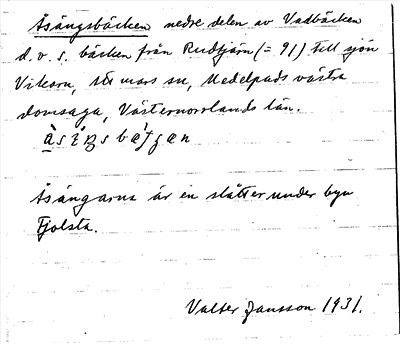 Åsängsbäcken nedre delen av Vadbäcken
d.v.s. bäcken från Rudtjärn (= 91) till sjön
Vikarn, mars sn, Medelpads västra
domsaga, Västernorrlands län.
Åsängarna är en slåtter under byn
Fjolsta.
Valter Jansson 1931.